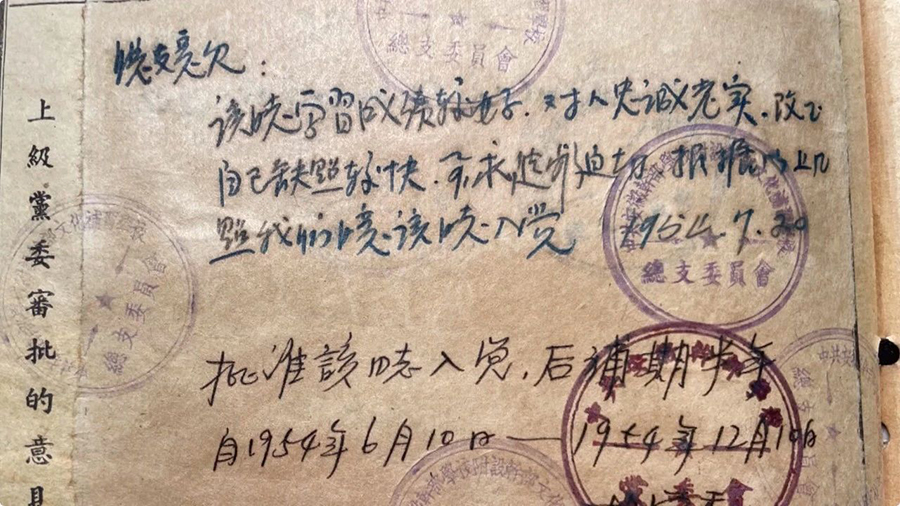 上級黨委審批的意見
总支意见：
该同志学習成績较好．对人忠诚老实．改正
自己缺点较快．要求進步迫切．根據以上几
點我们同意该同志入党 1954.7.20
批准該同志入党，后補期半年
自1954年6月10日——1954年12月10日
總支委員會
總支委員會
總支委員會